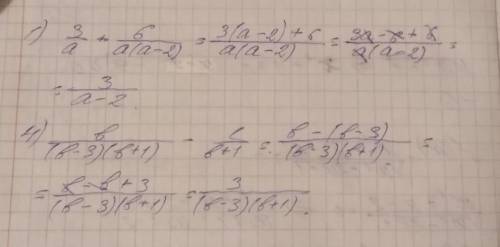 1) 3/a + 6/a(a-2) = 3(a-2)+6/a(a-2) = 3a-6+6/a(a-2) =
= 3/a-2.
4) b/(b-3)(b+1) - 1/b+1 = b-(b-3)/(b-3)(b+1) =
= b-b+3/(b-3)(b+1) = 3/(b-3)(b+1).